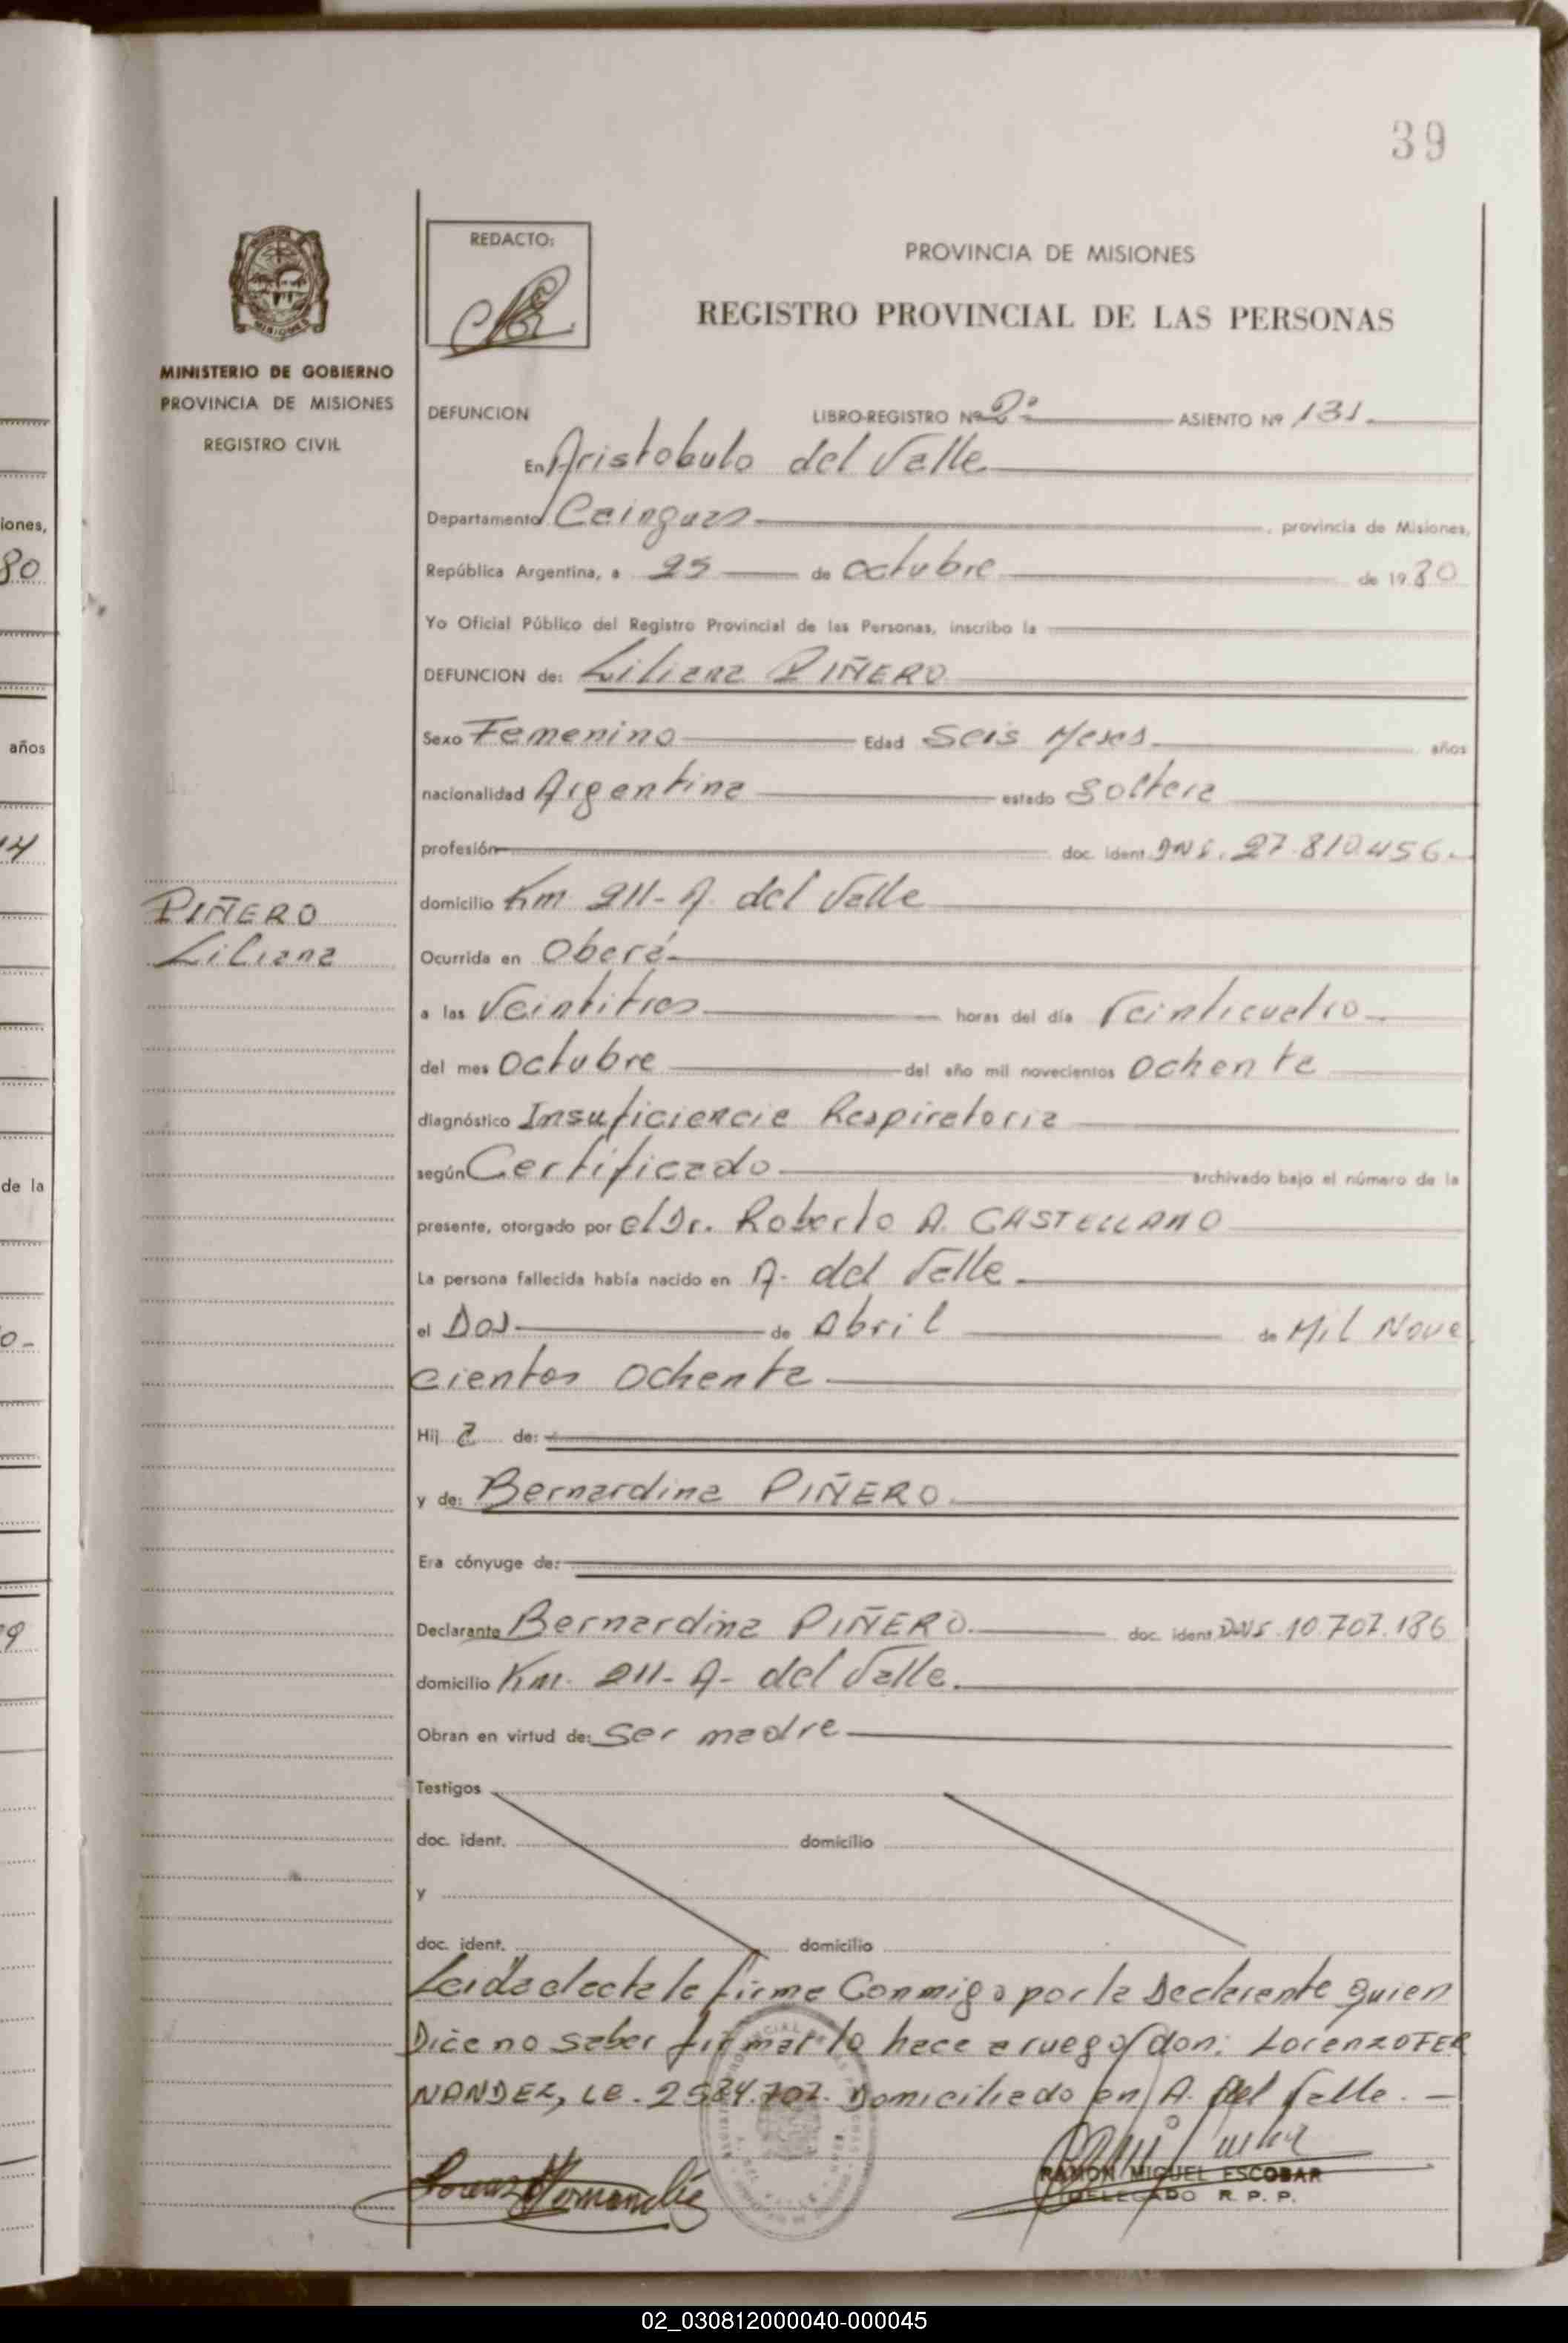 39
MINISTERIO DE GOBIERNO
PROVINCIA DE MISIONES
REGISTRO CIVIL
REDACTO:
PROVINCIA DE MISIONES
REGISTRO PROVINCIAL DE LAS PERSONAS
DEFUNCION LIBRO-REGISTRO Nº 2º ASIENTO Nº 131.
En Aristobulo del Valle
Departamento Cainguas, provincia de Misiones,
República Argentina, a 25 de octubre de 1980
Yo Oficial Público del Registro Provincial de las Personas, inscribo la
DEFUNCION de: Liliana PIÑERO
Sexo Femenino Edad Seis Meses años
nacionalidad Argentina estado Soltera
profesión doc. ident. DNI. 27.810.456.
PIÑERO
Liliana
domicilio Km 211- A. del Valle
Ocurrida en Oberá
a las Veintitres horas del día Veinticuatro
del mes octubre del año mil novecientos ochenta
diagnóstico Insuficiencia Respiratoria
según Certificado archivado bajo el número de la
presente, otorgado por el Dr. Roberto A. CASTELLANO
La persona fallecida había nacido en A. del Valle
el Dos de Abril de Mil Nove
cientos ochenta
Hij a de:
y de: Bernardina PIÑERO
Era cónyuge de:
Declarante Bernardina PIÑERO doc. ident. DNI 10.707.186
domicilio Km. 211- A- del Valle.
Obran en virtud de: Ser madre
Testigos
doc. ident. domicilio
y
doc. ident. domicilio
Leida el acta la firma Conmigo por la Declarante quien
Dice no saber firmar lo hace a ruego don: Lorenzo FER
NANDEZ, LE. 2584.707. Domiciliado en A. del Valle.
RAMON MIGUEL ESCOBAR
DELEGADO R. P. P.
iones,
80
años
14
de la
02_030812000040-000045